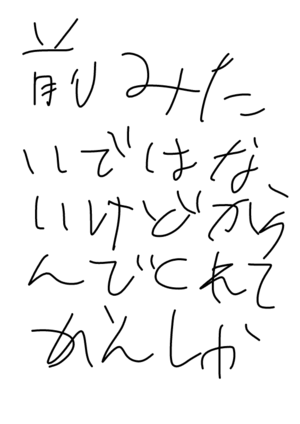 前みた
いではな
いけどから
んでくれて
がんしか